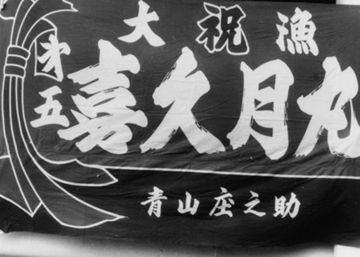 大祝漁
第五喜久月丸
青山座之助